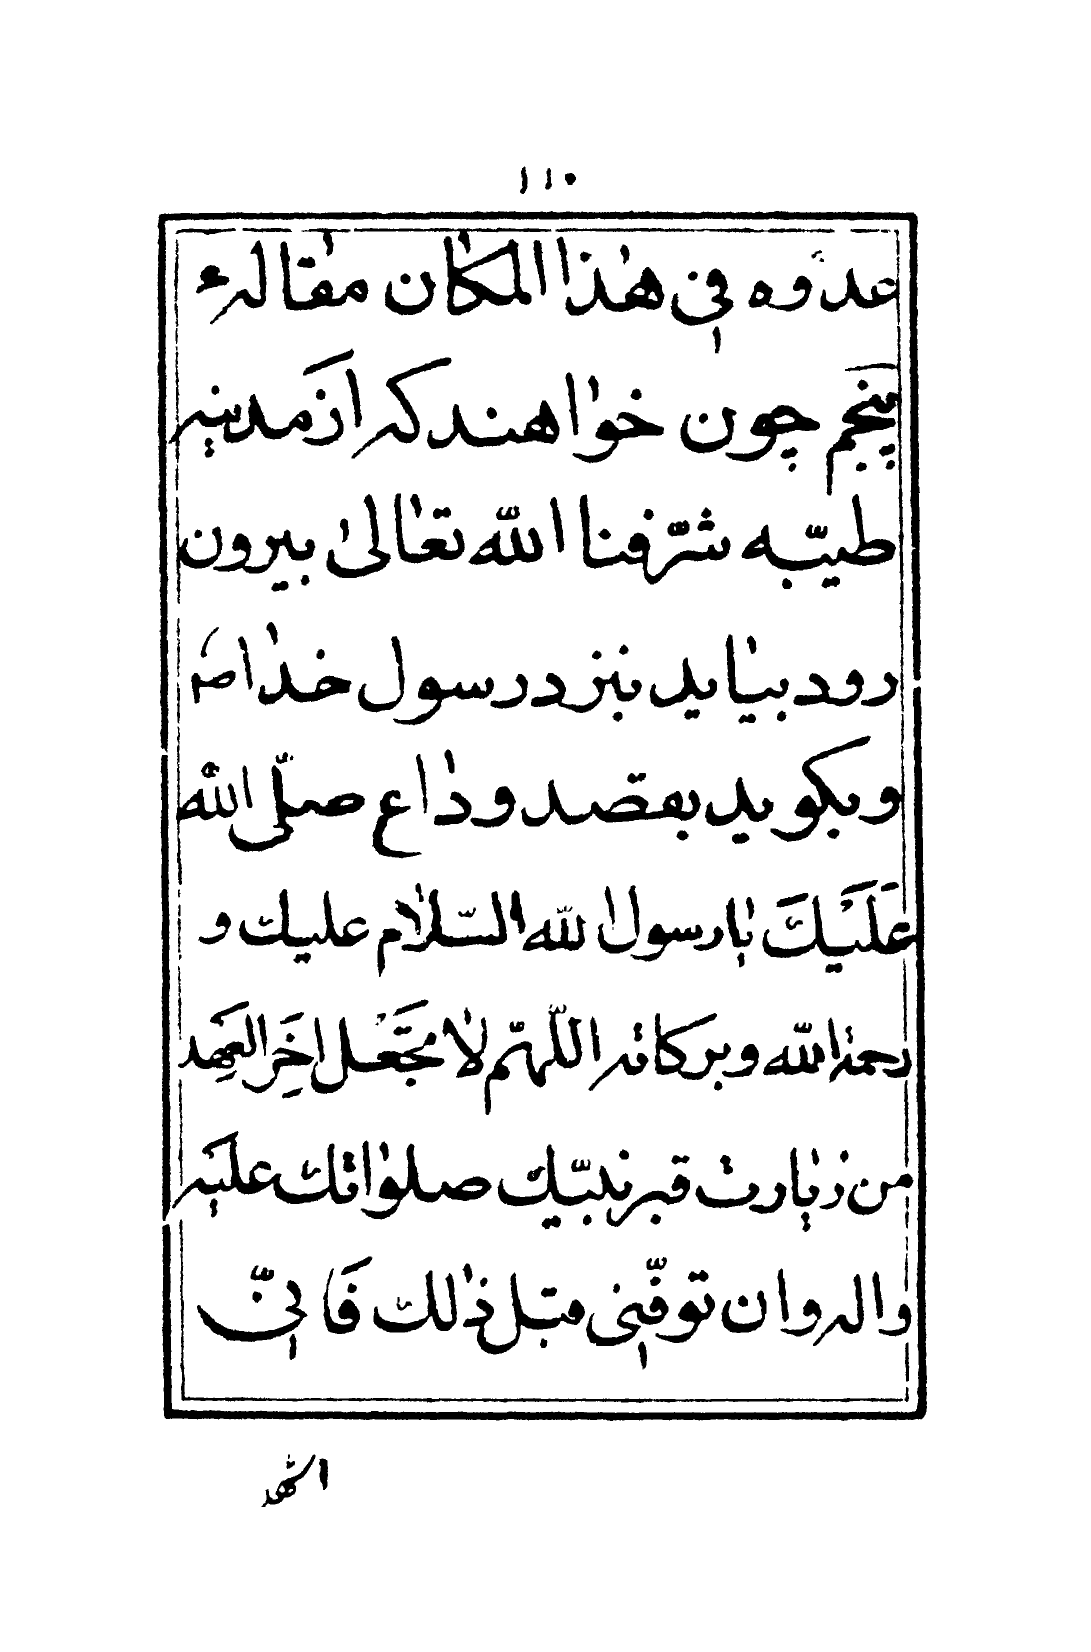 ۱۱۰
عدوّه في هٰذا المكان مقاله‌ء
پنجم چون خواهند که از مدینه
طیّبه شرّفنا اللّه تعالیٰ بیرون
رود بیاید بنزد رسول خدا ص
و بگوید بقصد وداع صلّی اللّه
عَلَیْكَ یا رسول اللّه السّلام علیك و
رحمة اللّه و برکاته اللّهمّ لا تَجْعَل اخِرَ العَهِد
من زیارت قبر نبیّك صلواتك علیَه
و اله و ان توفّیتنی قبل ذٰلك فَانّي
اشهد